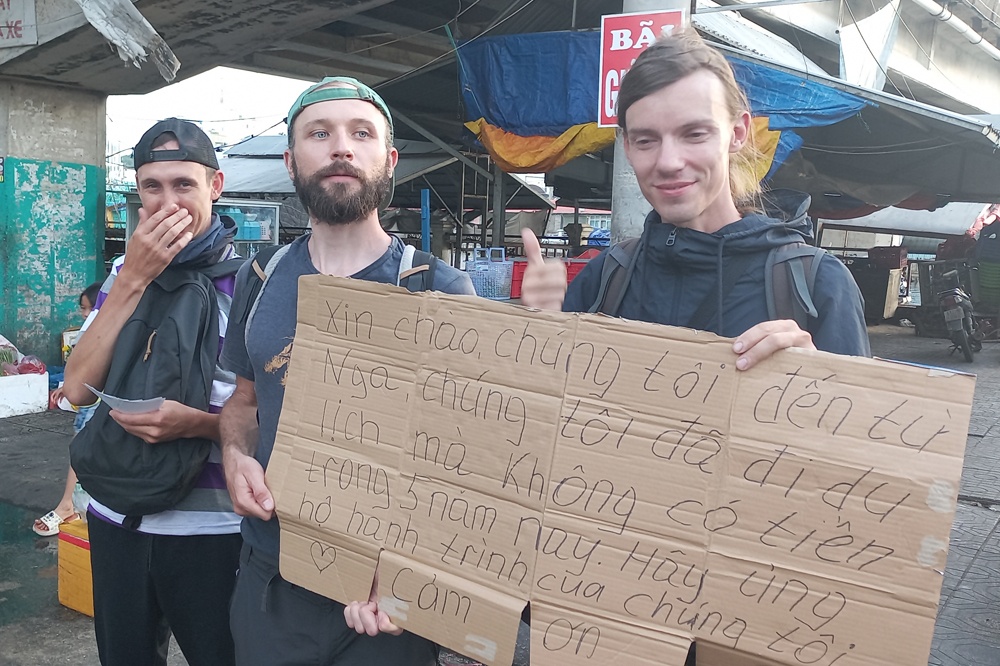 XE
BÃI
G
Xin chào, chúng tôi đến từ
Nga, chúng tôi đã đi du
lịch mà không có tiền
trong 5 năm nay. Hãy ủng
hộ hành trình của chúng tôi.
♡ Cảm ơn